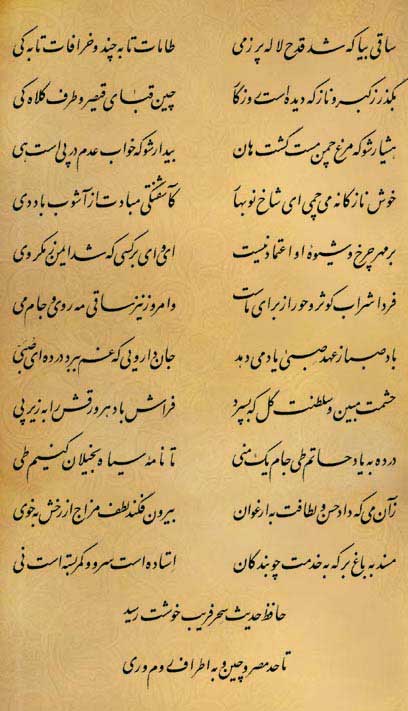 ساقی بیا که شد قدح لاله پر ز می طامات تا به چند و خرافات تا به کی
بگذر ز کبر و ناز که دیده است روزگا چین قبای قیصر و طرف کلاه کی
هشیار شو که مرغ چمن مست گشت هان بیدار شو که خواب عدم در پی است هی
خوش نازکانه می چمی ای شاخ نوبها کآشفتگی مبادت از آشوب باد دی
بر مهر چرخ و شیوهٔ او اعتماد نیست ای وای بر کسی که شد ایمن ز مکر وی
فردا شراب کوثر و حور از برای ماست و امروز نیز ساقی مه روی و جام می
باد صبا ز عهد صبی یاد می دهد جان دارویی که غم ببرد درده ای صبی
حشمت مبین و سلطنت گل که بسپرد فراش باد هر ورقش را به زیر پی
درده به یاد حاتم طی جام یک منی تا نامه سیاه بخیلان کنیم طی
زآن می که داد حسن و لطافت به ارغوان بیرون فکند لطف مزاج از رخش به خوی
مسند به باغ بر که به خدمت چو بندگان استاده است سرو و کمر بسته است نی
حافظ حدیث سحر فریب خوشت رسید
تا حد مصر و چین و به اطراف روم و ری